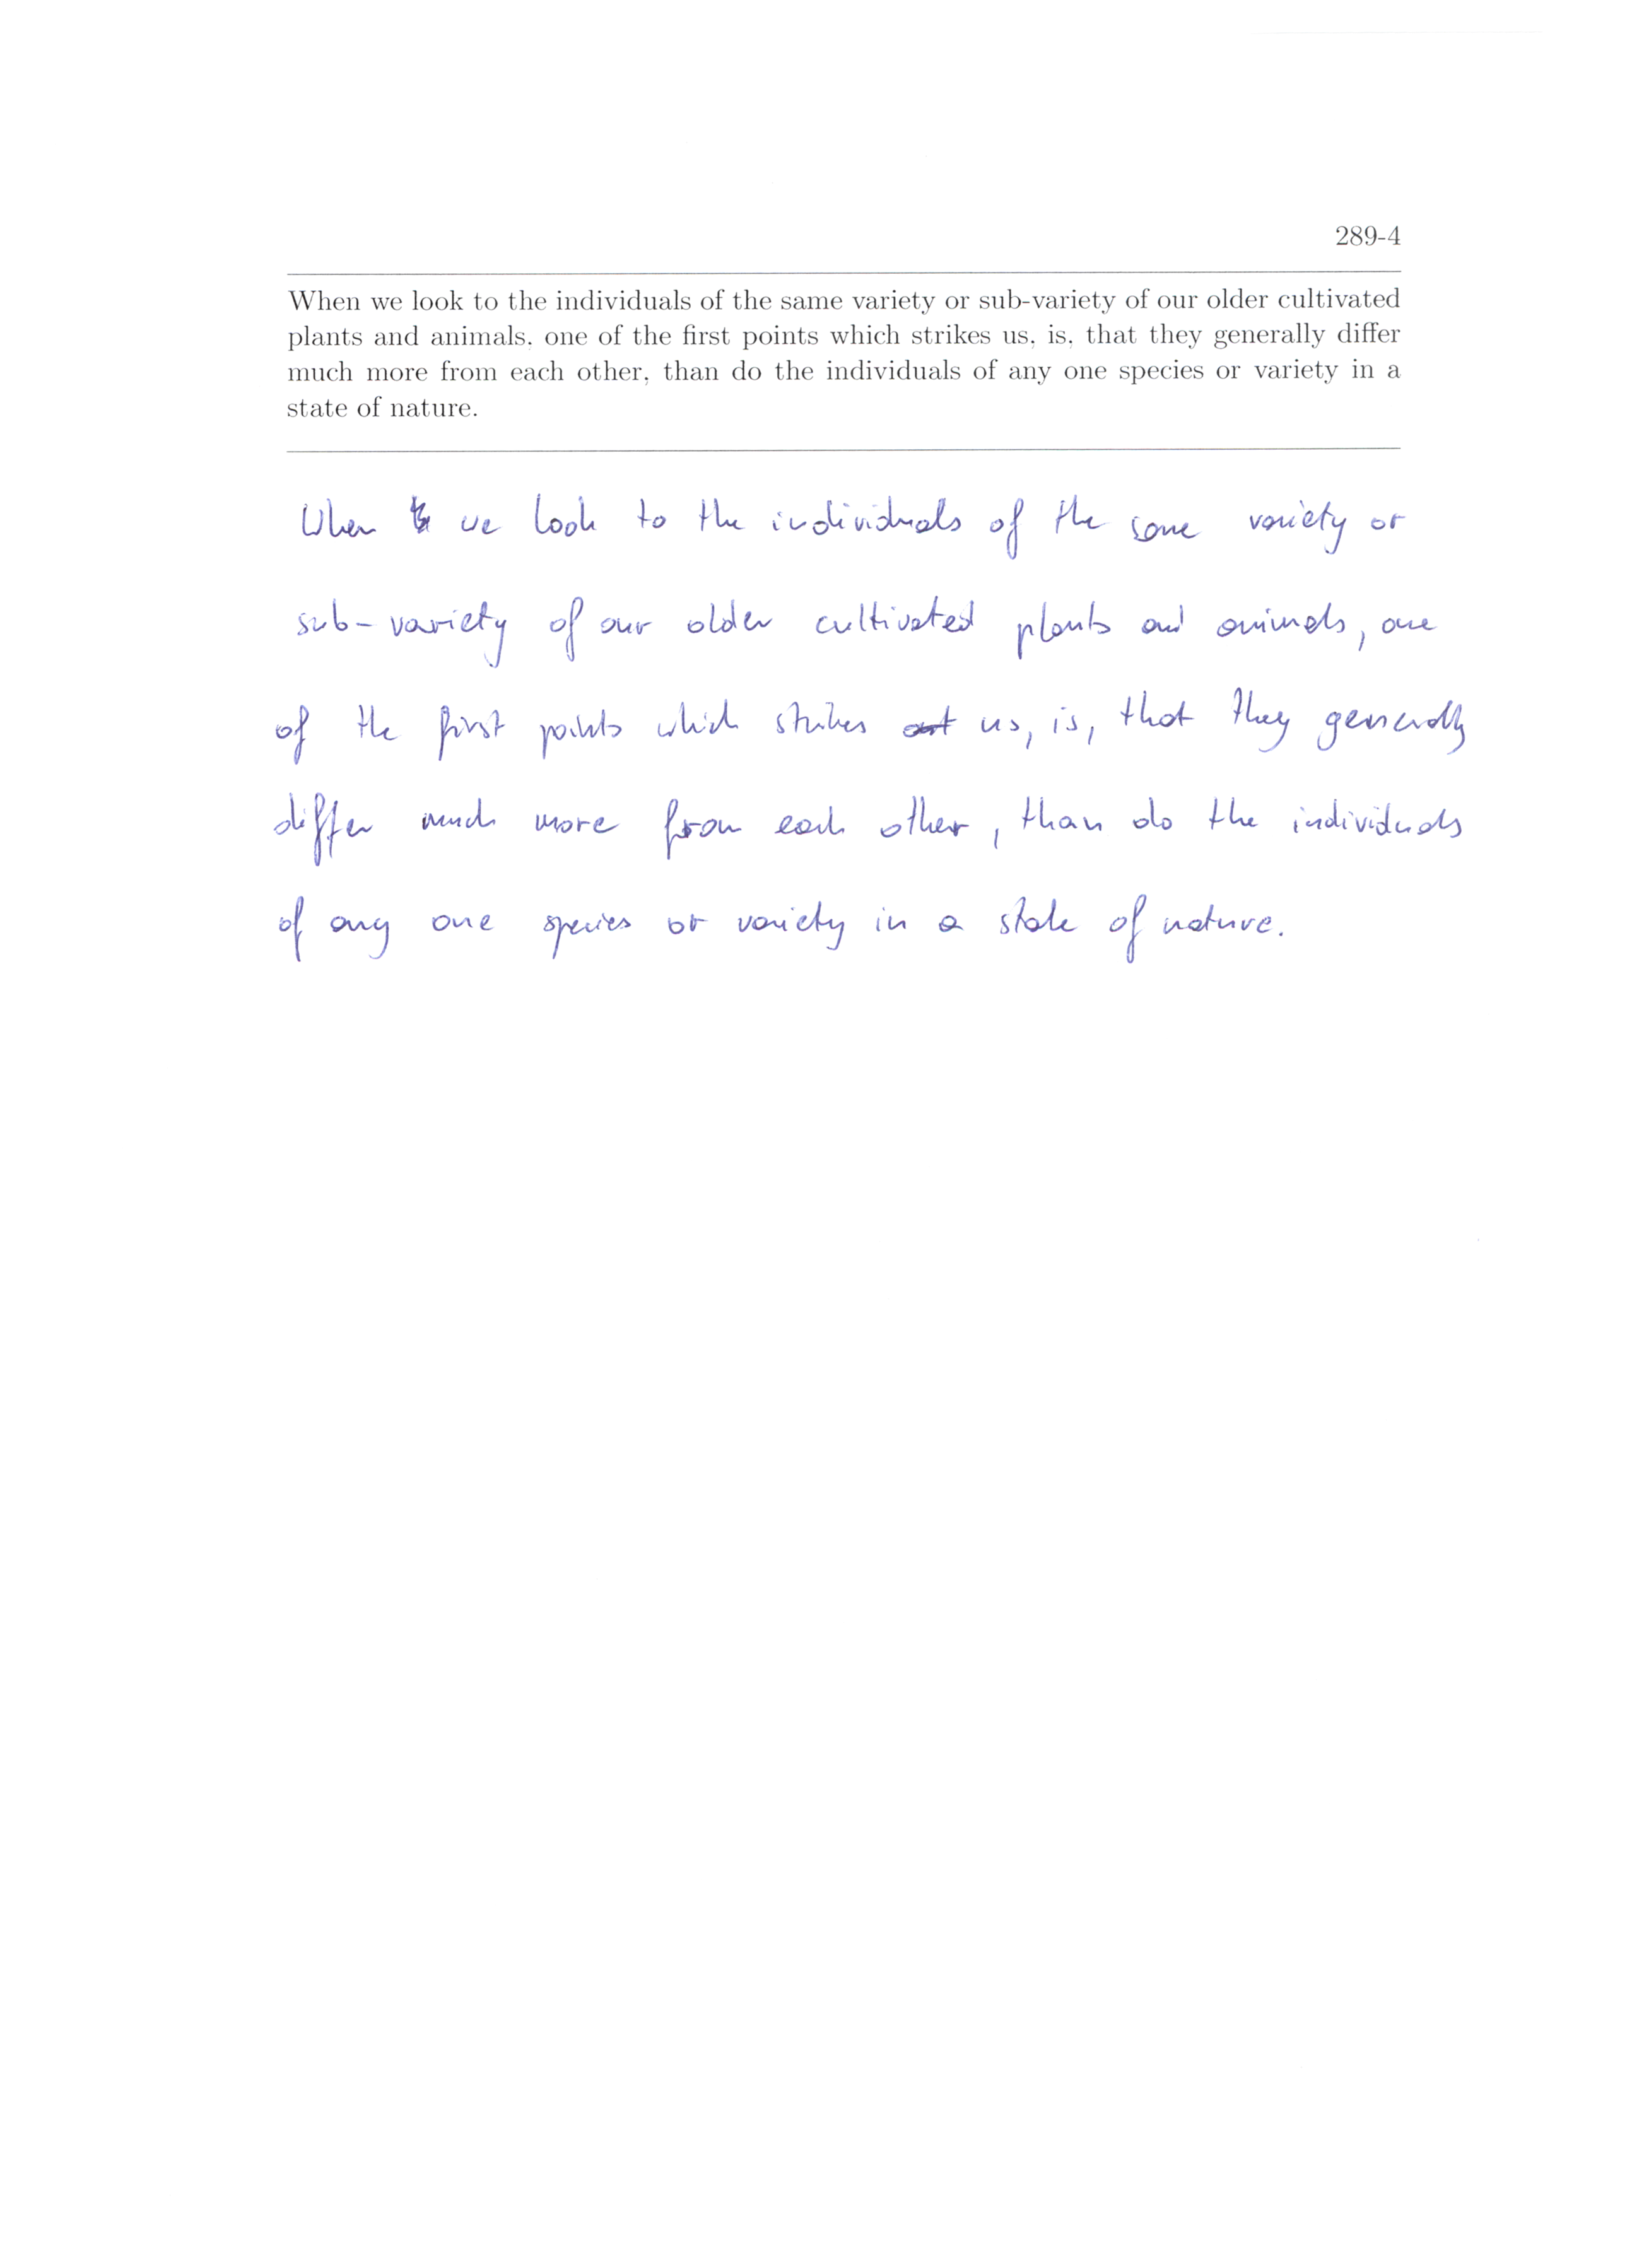 289-4
When we look to the individuals of the same variety or sub-variety of our older cultivated
plants and animals, one of the first points which strikes us, is, that they generally differ
much more from each other, than do the individuals of any one species or variety in a
state of nature.
When we look to the individuals of the same variety or
sub-variety of our older cultivated plants and animals, one
of the first points which strikes us, is, that they generally
differ much more from each other, than do the individuals
of any one species or variety in a state of nature.